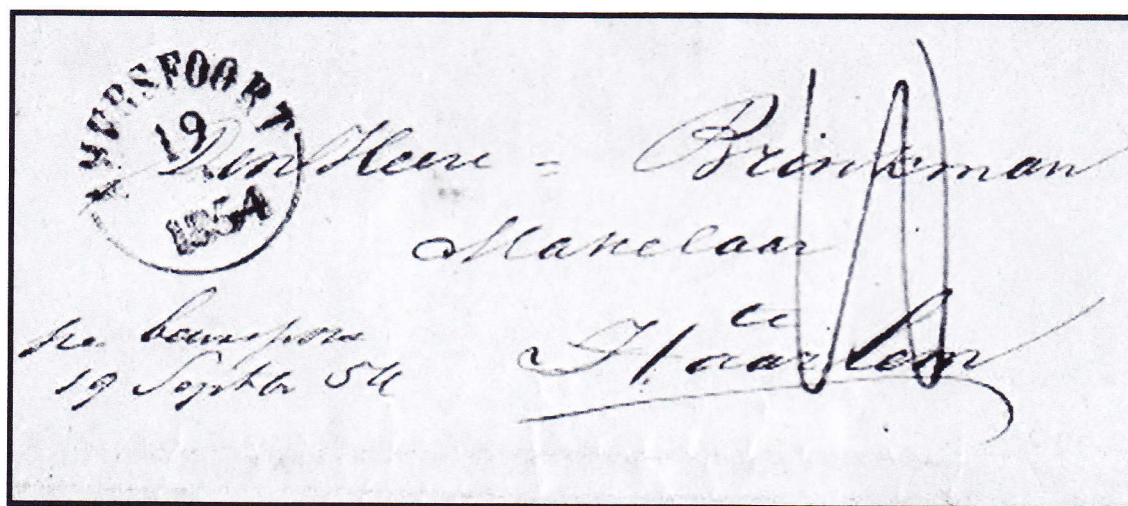 AMERSFOORT
19
1854
Den Heere = Brinkman
Makelaar
te
Haarlem
19 Septber 54